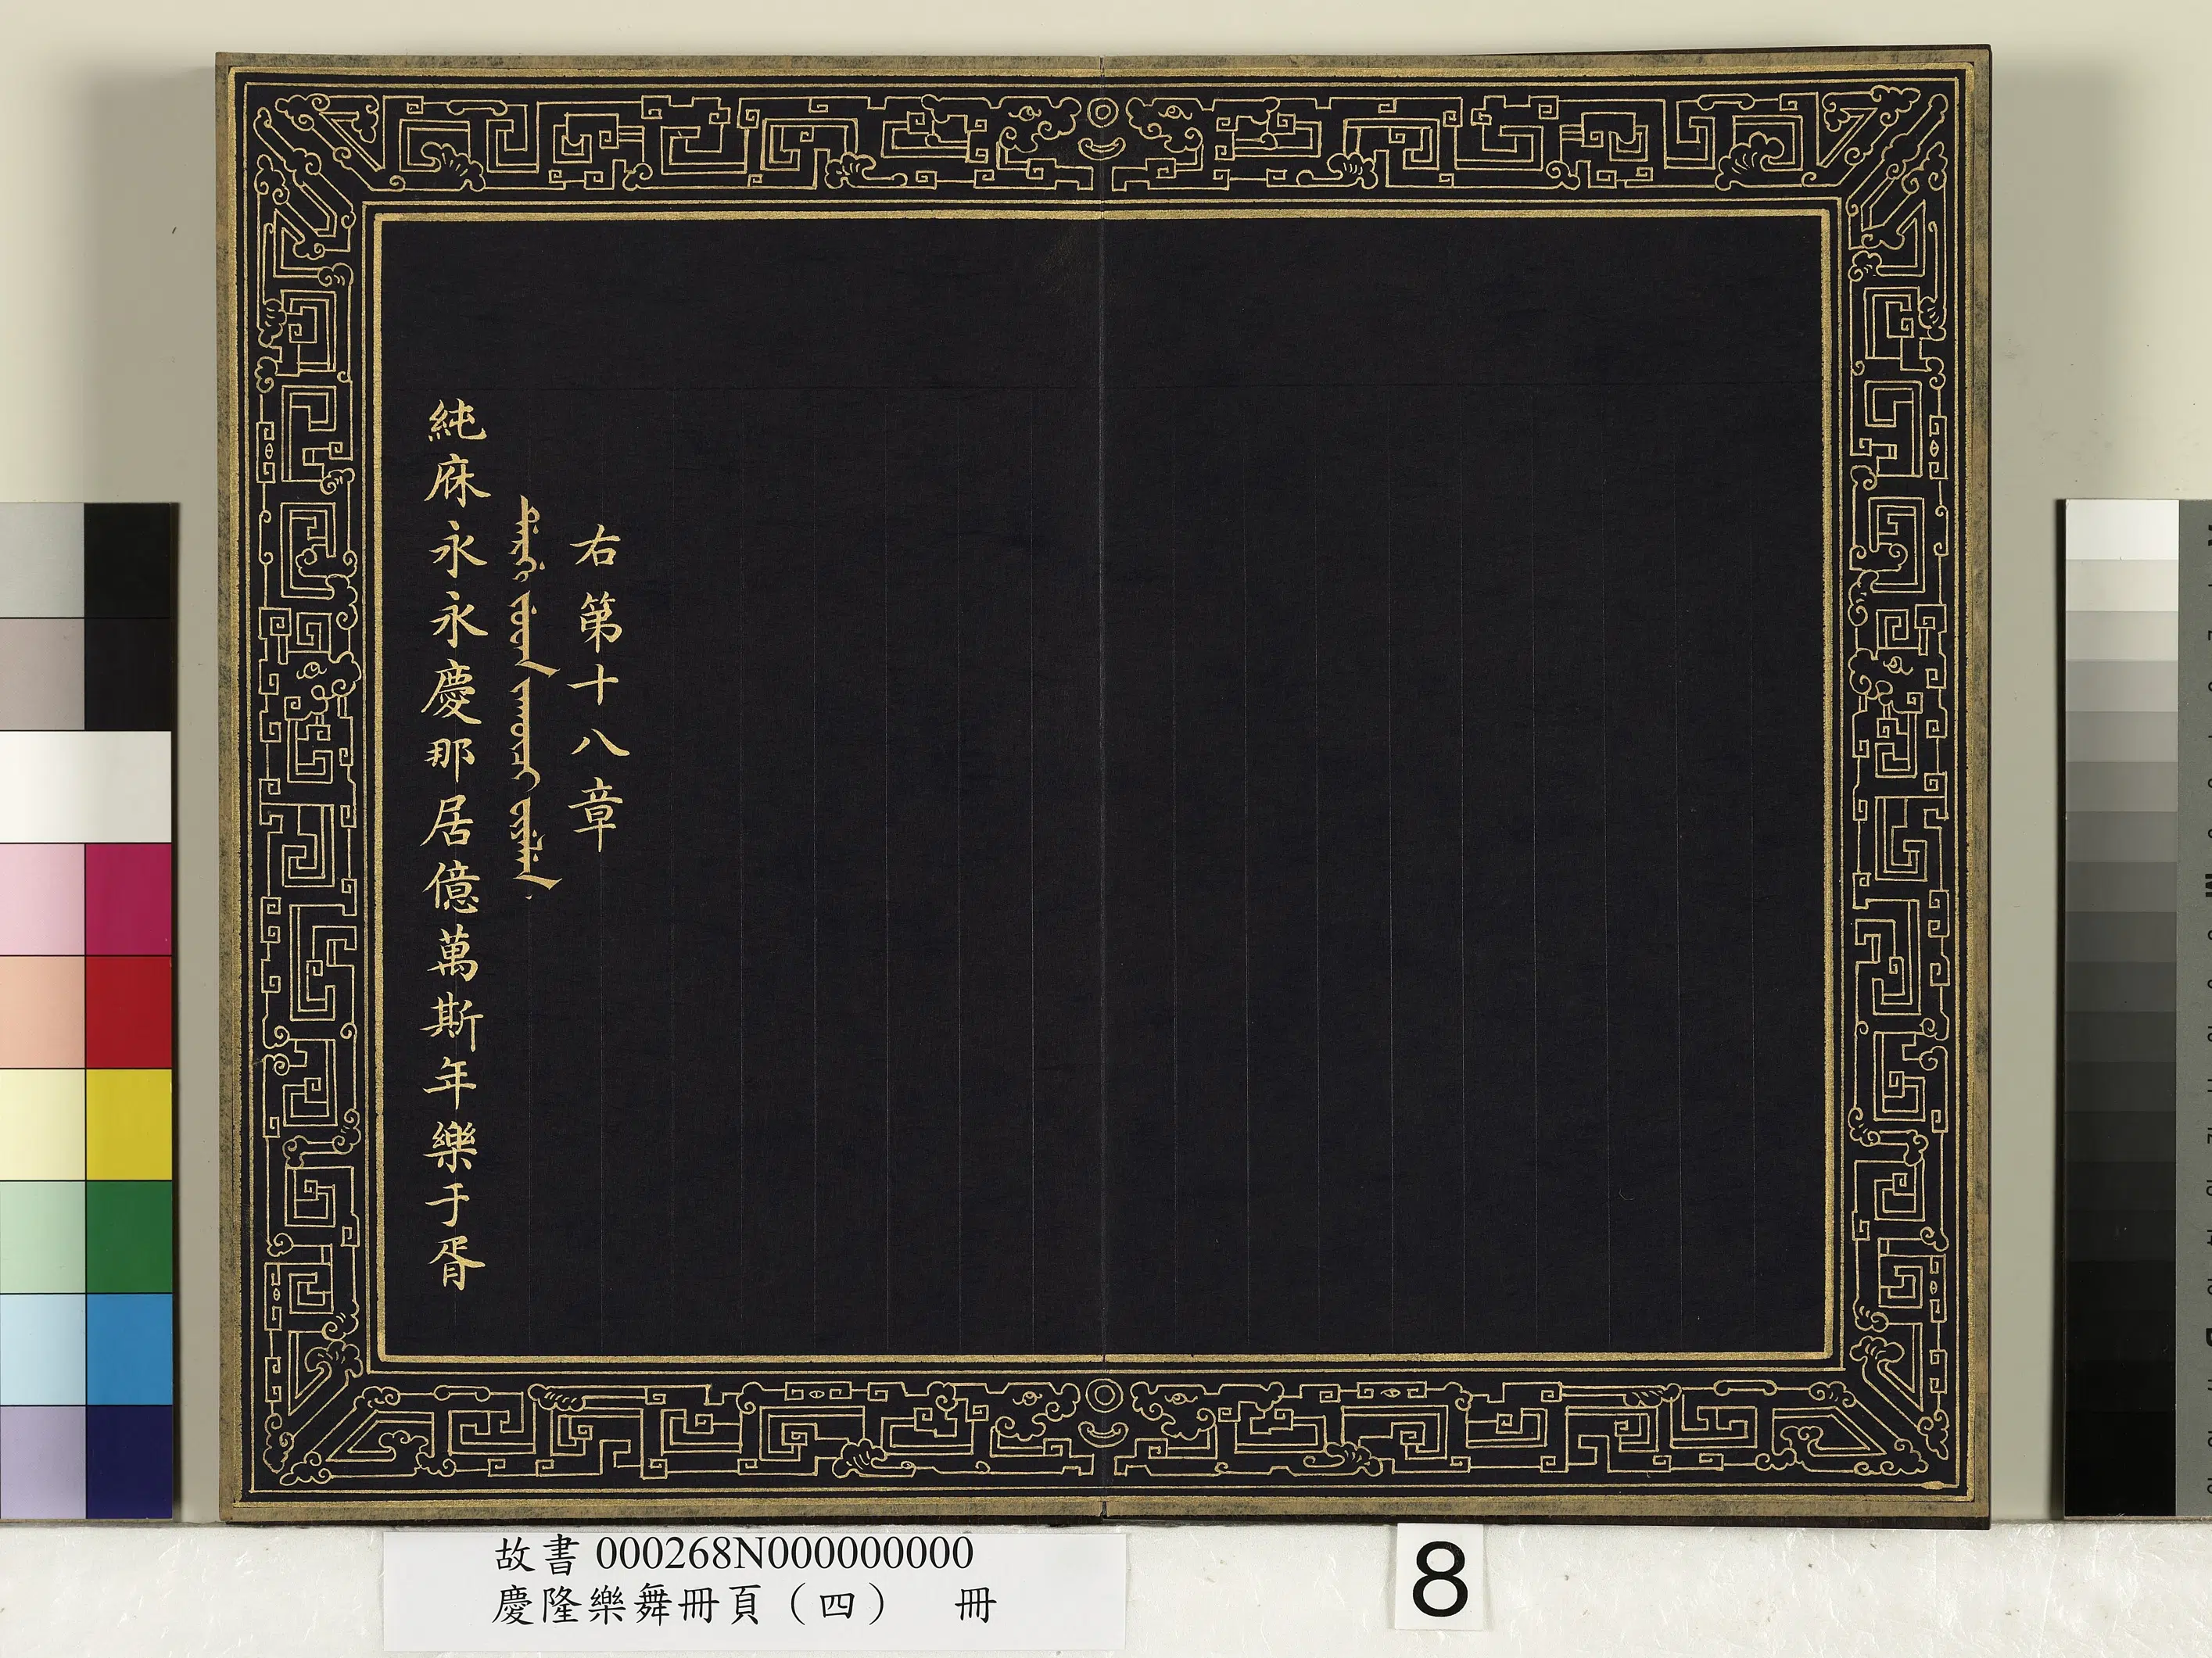 純庥永永慶那居億萬斯年樂于胥
右第十八章
故書 000268N000000000
慶隆樂舞冊頁（四） 冊
8